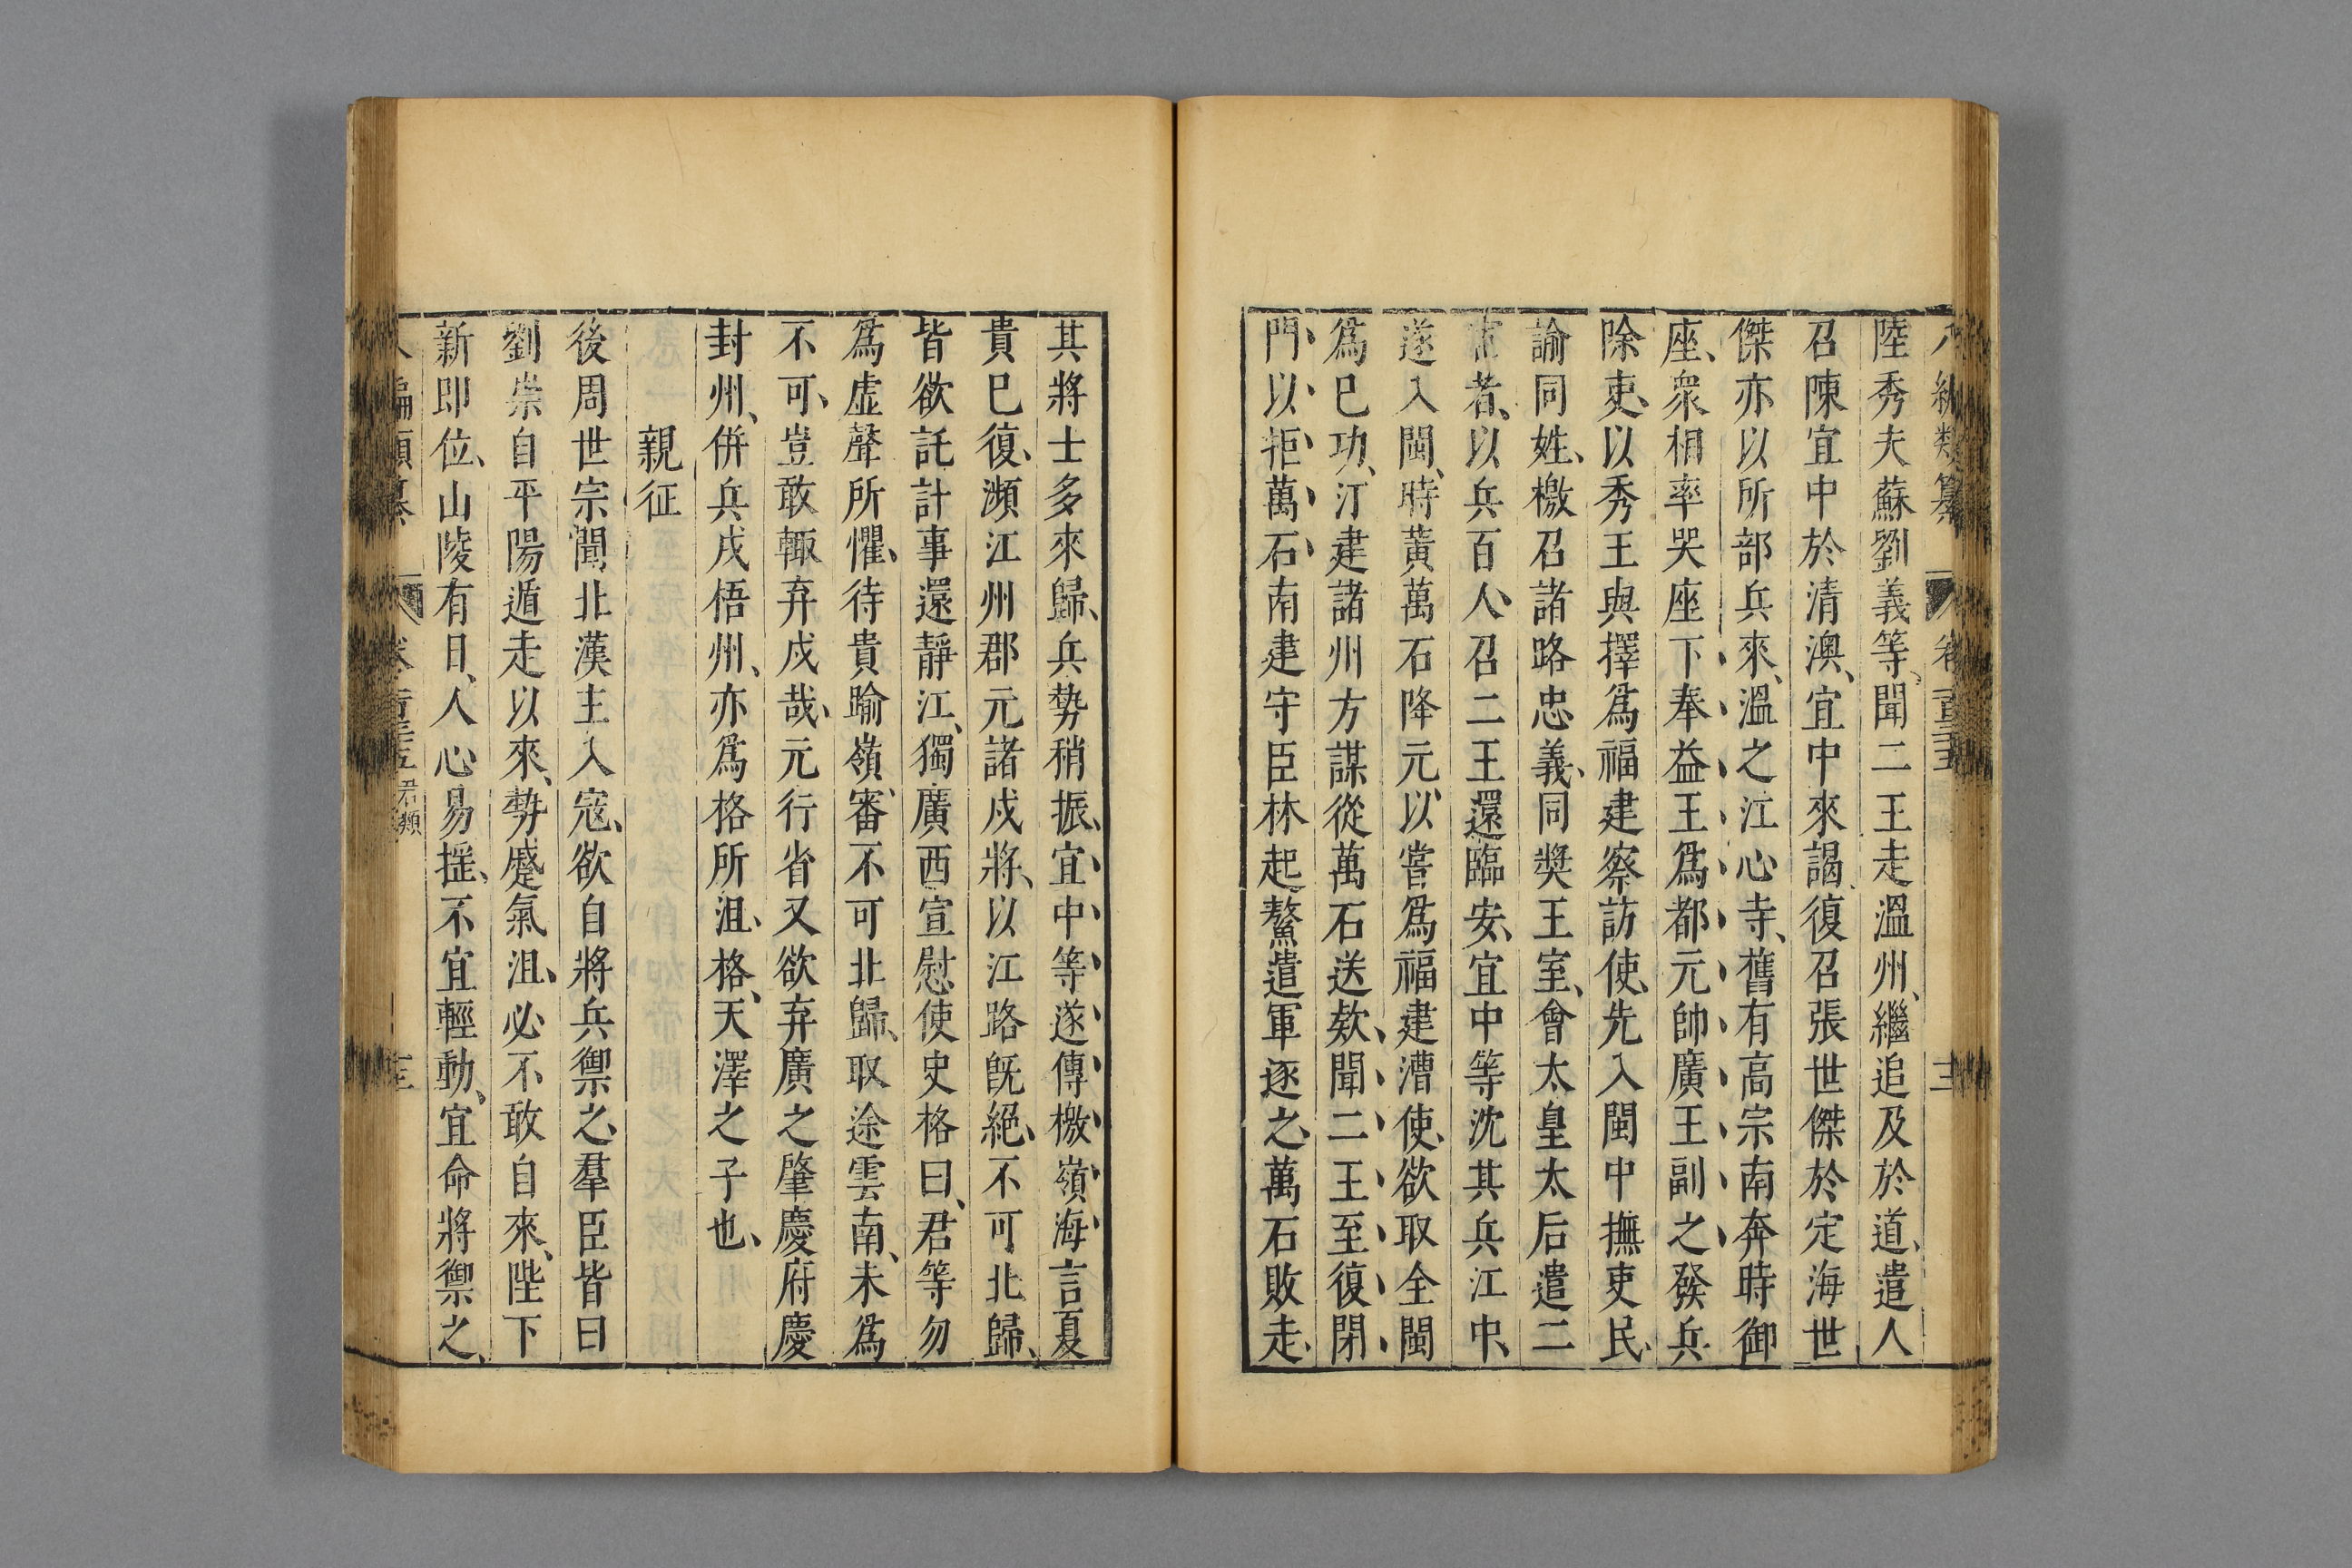 陸秀夫蘇劉義等、聞二王走溫州、繼追及於道、遣人
召陳宜中於清澳、宜中來謁、復召張世傑於定海世
傑亦以所部兵來、溫之江心寺、舊有高宗南奔時御
座、衆相率哭座下、奉益王爲都元帥廣王副之、發兵
除吏、以秀王與擇爲福建察訪使、先入閩中撫吏民、
諭同姓、檄召諸路忠義、同奬王室、會太皇太后遣二
宦者、以兵百人、召二王還臨安、宜中等沈其兵江中、
遂入閩、時黃萬石降元、以嘗爲福建漕使、欲取全閩
爲已功、汀建諸州方謀從萬石送欵、聞二王至、復閉
門、以拒萬石、南建守臣林起鰲遣軍逐之、萬石敗走、
其將士多來歸、兵勢稍振、宜中等遂傳檄嶺海言夏
貴巳復、瀕江州郡元諸戍將、以江路旣絕、不可北歸、
皆欲託計事還靜江、獨廣西宣慰使史格曰、君等勿
爲虛聲所懼、待貴踰嶺、審不可北歸、取途雲南、未爲
不可、豈敢輙弃戍哉、元行省又欲弃廣之肇慶府慶
封州、併兵戍梧州、亦爲格所沮、格、天澤之子也、
親征
後周世宗聞北漢主入寇、欲自將兵禦之、羣臣皆曰
劉崇自平陽遁走以來、勢蹙氣沮、必不敢自來、陛下
新即位、山陵有日、人心易搖、不宜輕動、宜命將禦之、